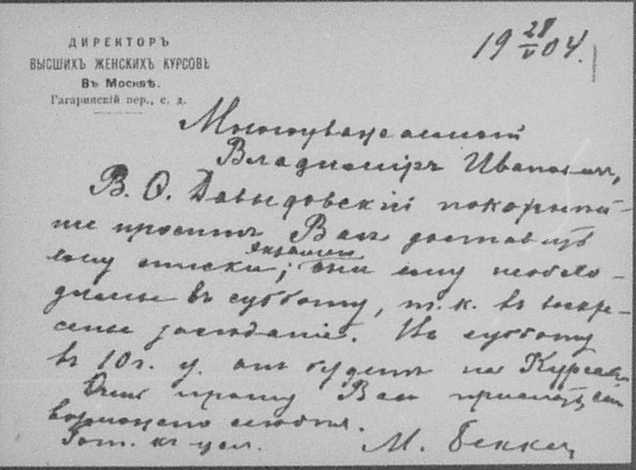 ДИРЕКТОРЪ
ВЫСШИХЪ ЖЕНСКИХЪ КУРСОВЪ
Въ Москвѣ.
Гагаринскій пер., с. д.
19 28/V 04.
Многоуважаемый
Владиміръ Ивановичъ,
В. О. Давыдовскій покорнѣй-
ше проситъ Васъ доставить
ему списки; они ему необхо-
димы въ субботу, т. к. въ воскре-
сенье засѣданіе. Въ субботу
въ 10 ч. у. онъ будетъ на Курсахъ
Очень прошу Васъ прислать
возможно
Гот. къ усл.